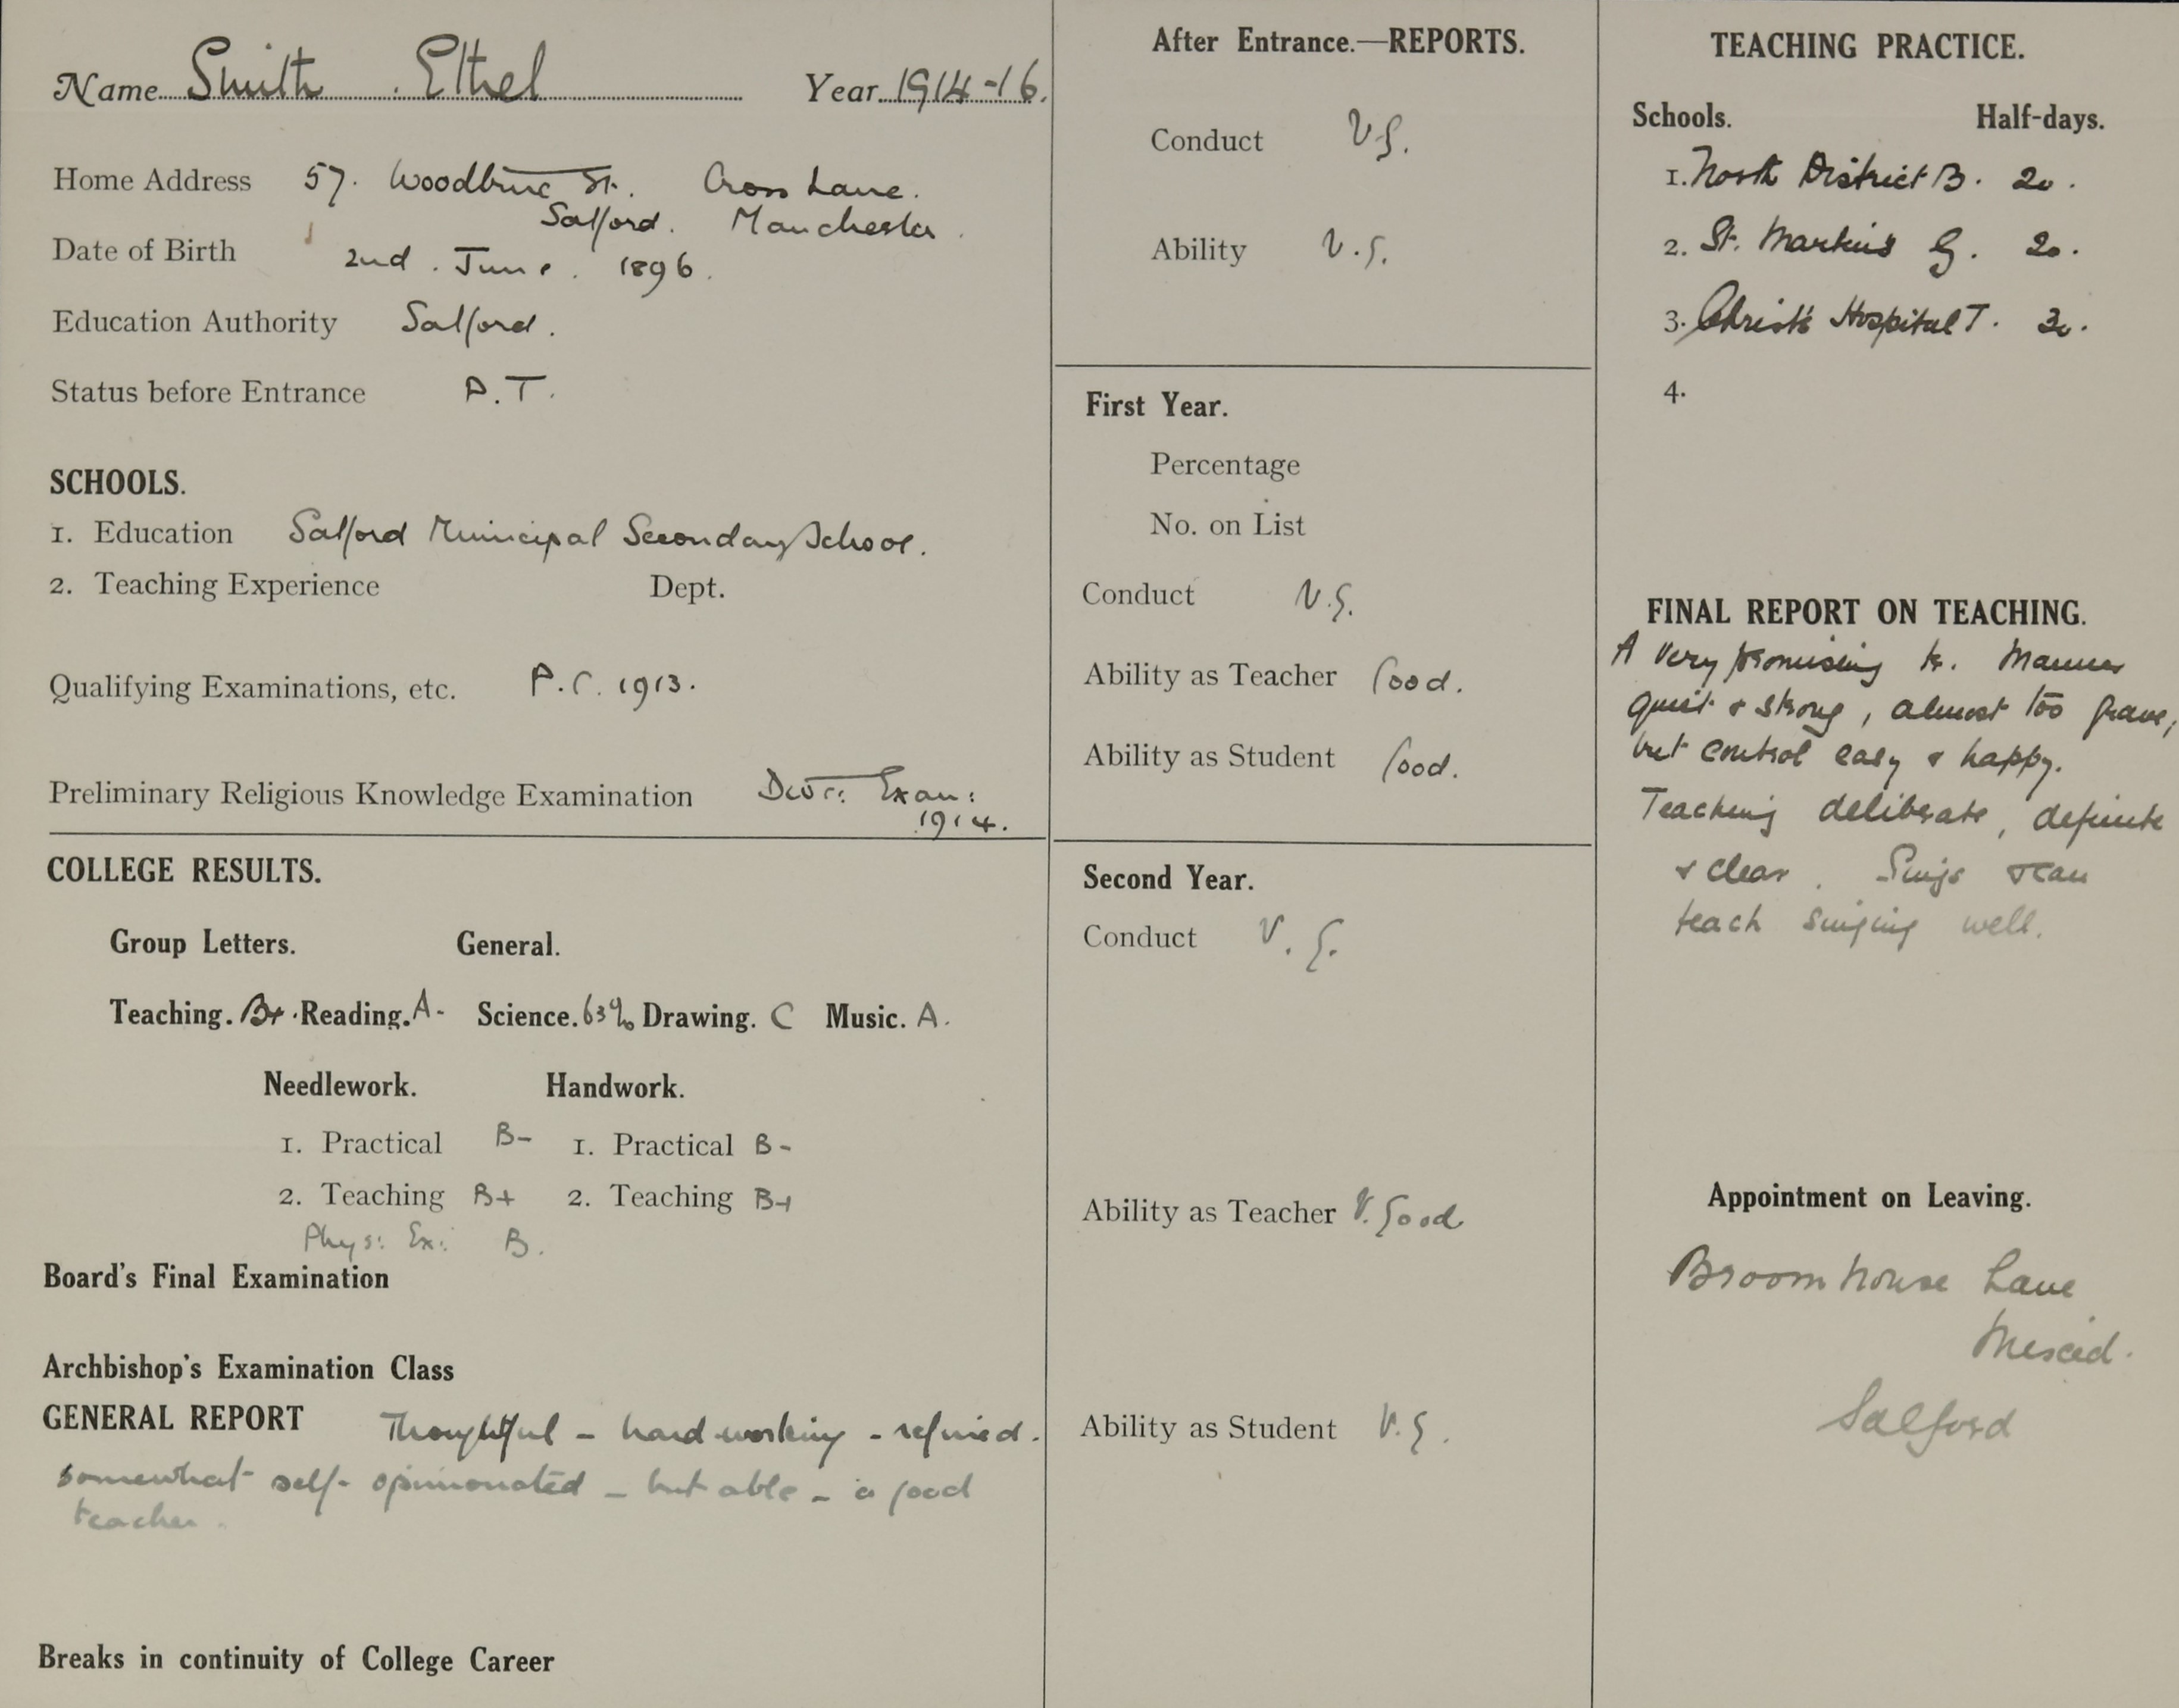 Name Smith Ethel Year 1914-16.
Home Address 57. Woodbine St. Cross Lane.
Salford. Manchester.
Date of Birth 2nd. June. 1896.
Education Authority Salford.
Status before Entrance P.T.
SCHOOLS.
1. Education Salford Municipal Secondary School.
2. Teaching Experience Dept.
Qualifying Examinations, etc. P.C. 1913.
Preliminary Religious Knowledge Examination Exam:
1914.
COLLEGE RESULTS.
Group Letters. General.
Teaching. B+. Reading. A- Science. 63% Drawing. C Music. A.
Needlework. Handwork.
1. Practical B- 1. Practical B-
2. Teaching B+ 2. Teaching B+
Phys: Ex: B.
Board's Final Examination
Archbishop's Examination Class
GENERAL REPORT Thoughtful - hard-working - refined.
somewhat self-opinionated - but able - a good
teacher.
Breaks in continuity of College Career
After Entrance.—REPORTS.
Conduct V.G.
Ability V.G.
First Year.
Percentage
No. on List
Conduct V.G.
Ability as Teacher Good.
Ability as Student Good.
Second Year.
Conduct V. G.
Ability as Teacher V. Good
Ability as Student V.G.
TEACHING PRACTICE.
Schools. Half-days.
1. North District B. 20.
2. St. Martin's G. 20.
3. Christ's Hospital T. 30.
4.
FINAL REPORT ON TEACHING.
A very promising tr. Manner
quiet & strong, almost too grave,
but control easy & happy.
Teaching deliberate, definite
& clear. Sings & can
teach singing well.
Appointment on Leaving.
Broomhouse Lane
Mixed.
Salford